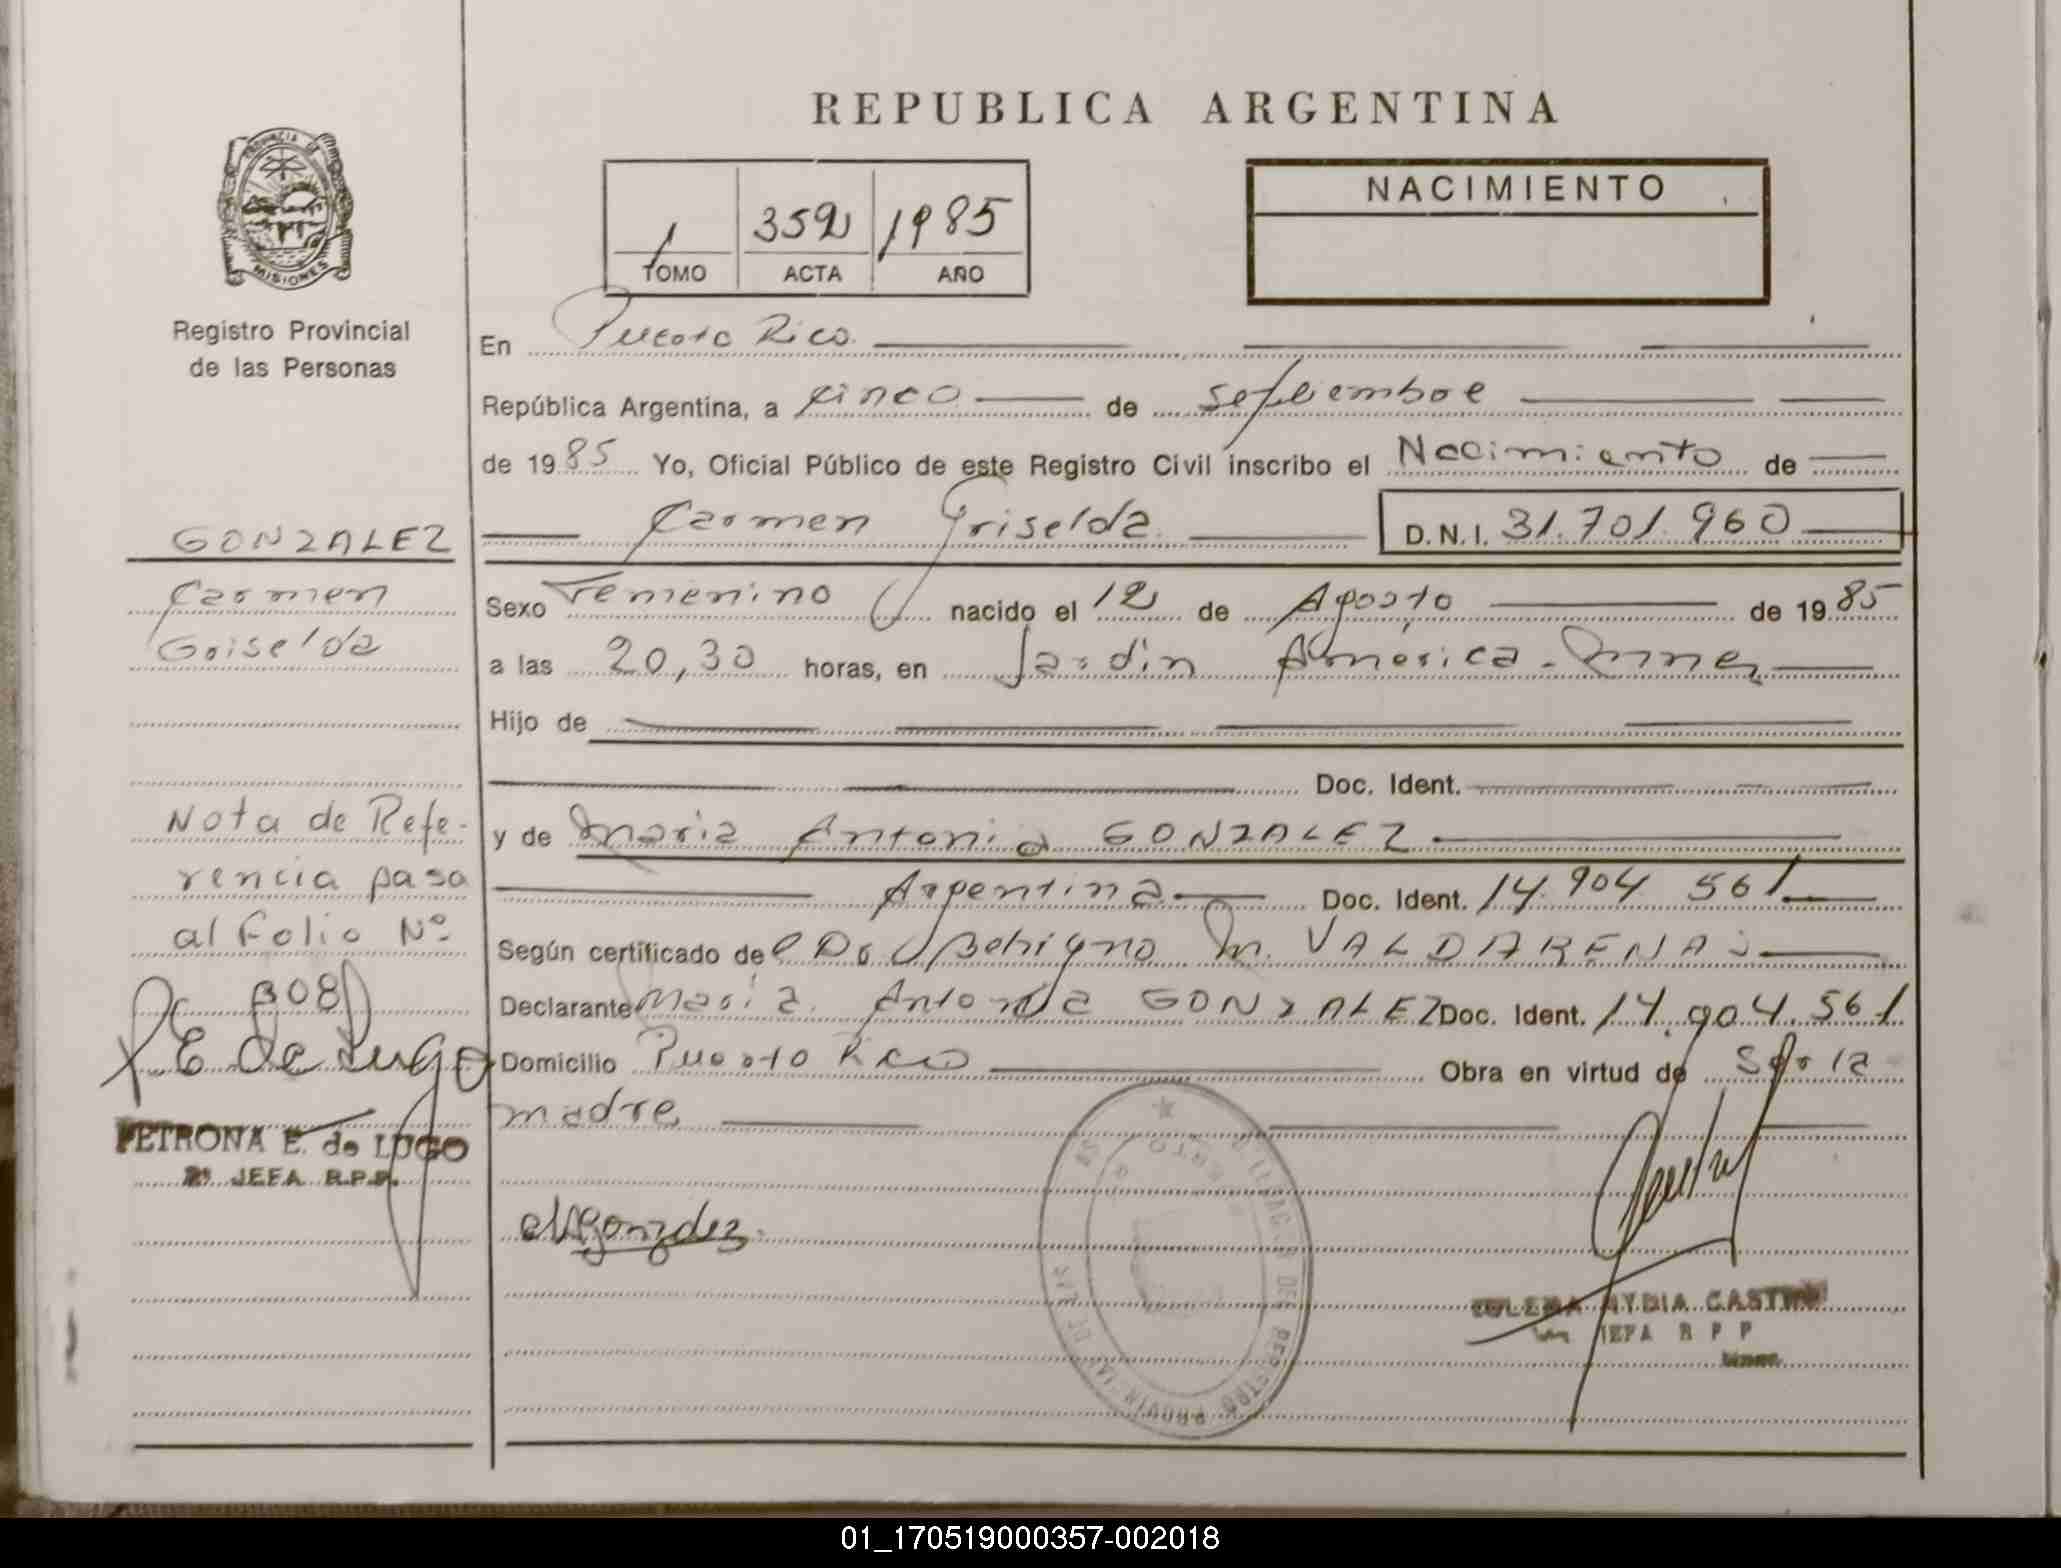 REPUBLICA ARGENTINA
PROVINCIA DE
MISIONES
Registro Provincial
de las Personas
1 352 1985
TOMO ACTA AÑO
NACIMIENTO
En Puerto Rico
República Argentina, a cinco de septiembre
de 1985 Yo, Oficial Público de este Registro Civil inscribo el Nacimiento de
Carmen Griselda D.N.I. 31.701.960
Sexo Femenino nacido el 12 de Agosto de 1985
a las 20,30 horas, en Jardin América - Mnes
Hijo de
Doc. Ident.
y de Maria Antonia GONZALEZ
Argentina Doc. Ident. 14.904 561
Según certificado del Dr Benigno M. VALDARENAS
Declarante Maria Antonia GONZALEZ Doc. Ident. 14.904.561
Domicilio Puerto Rico Obra en virtud de Ser la
madre
MAGonzalez.
GONZALEZ
Carmen
Griselda
Nota de Refe-
rencia pasa
al Folio Nº
308
P E de Lugo
PETRONA E. de LUGO
2ª JEFA R.P.P.
NYDIA CASTRO
JEFA R P P
DEL REGISTRO PROVINCIAL DE LAS
01_170519000357-002018